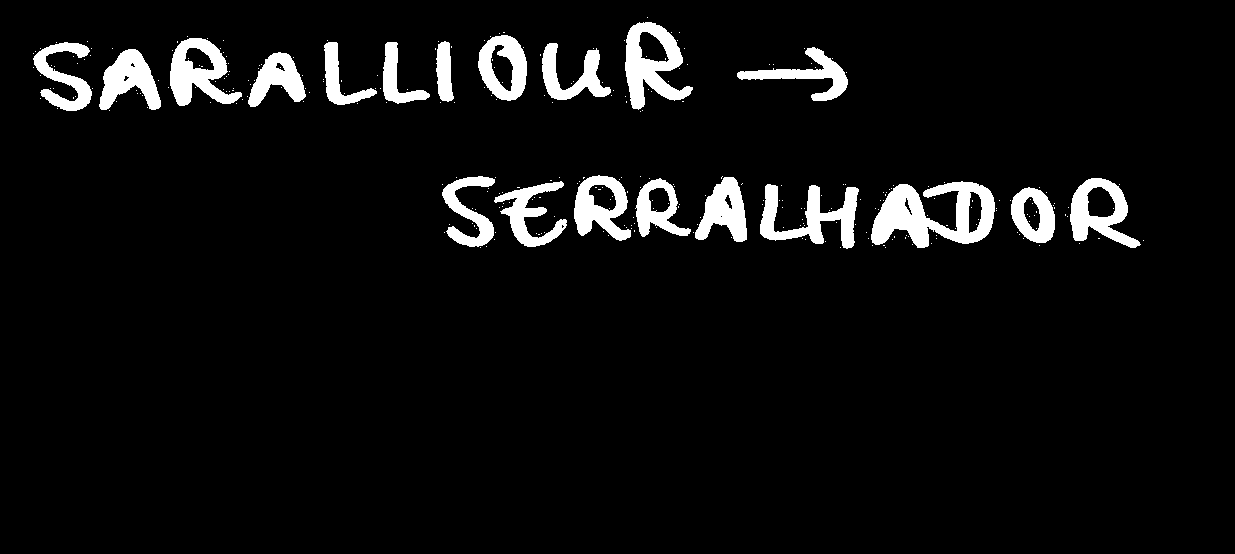 SARALLIOUR →
SERRALHADOR